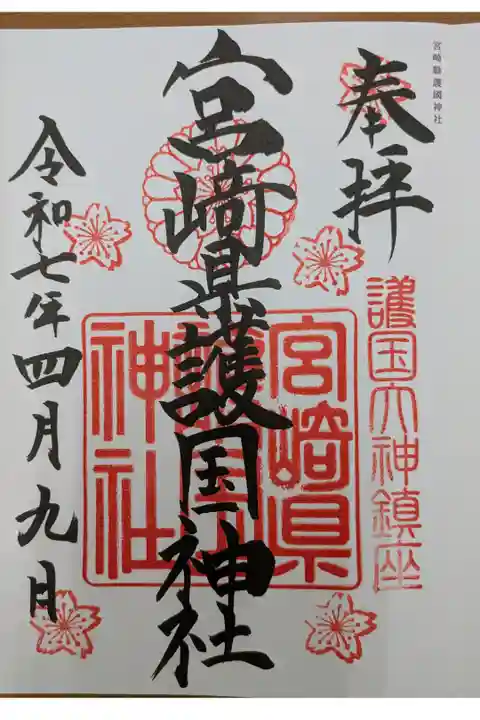 宮崎縣護國神社
奉拝
護国大神鎮座
宮﨑県護国神社
宮﨑県
神社
令和七年四月九日